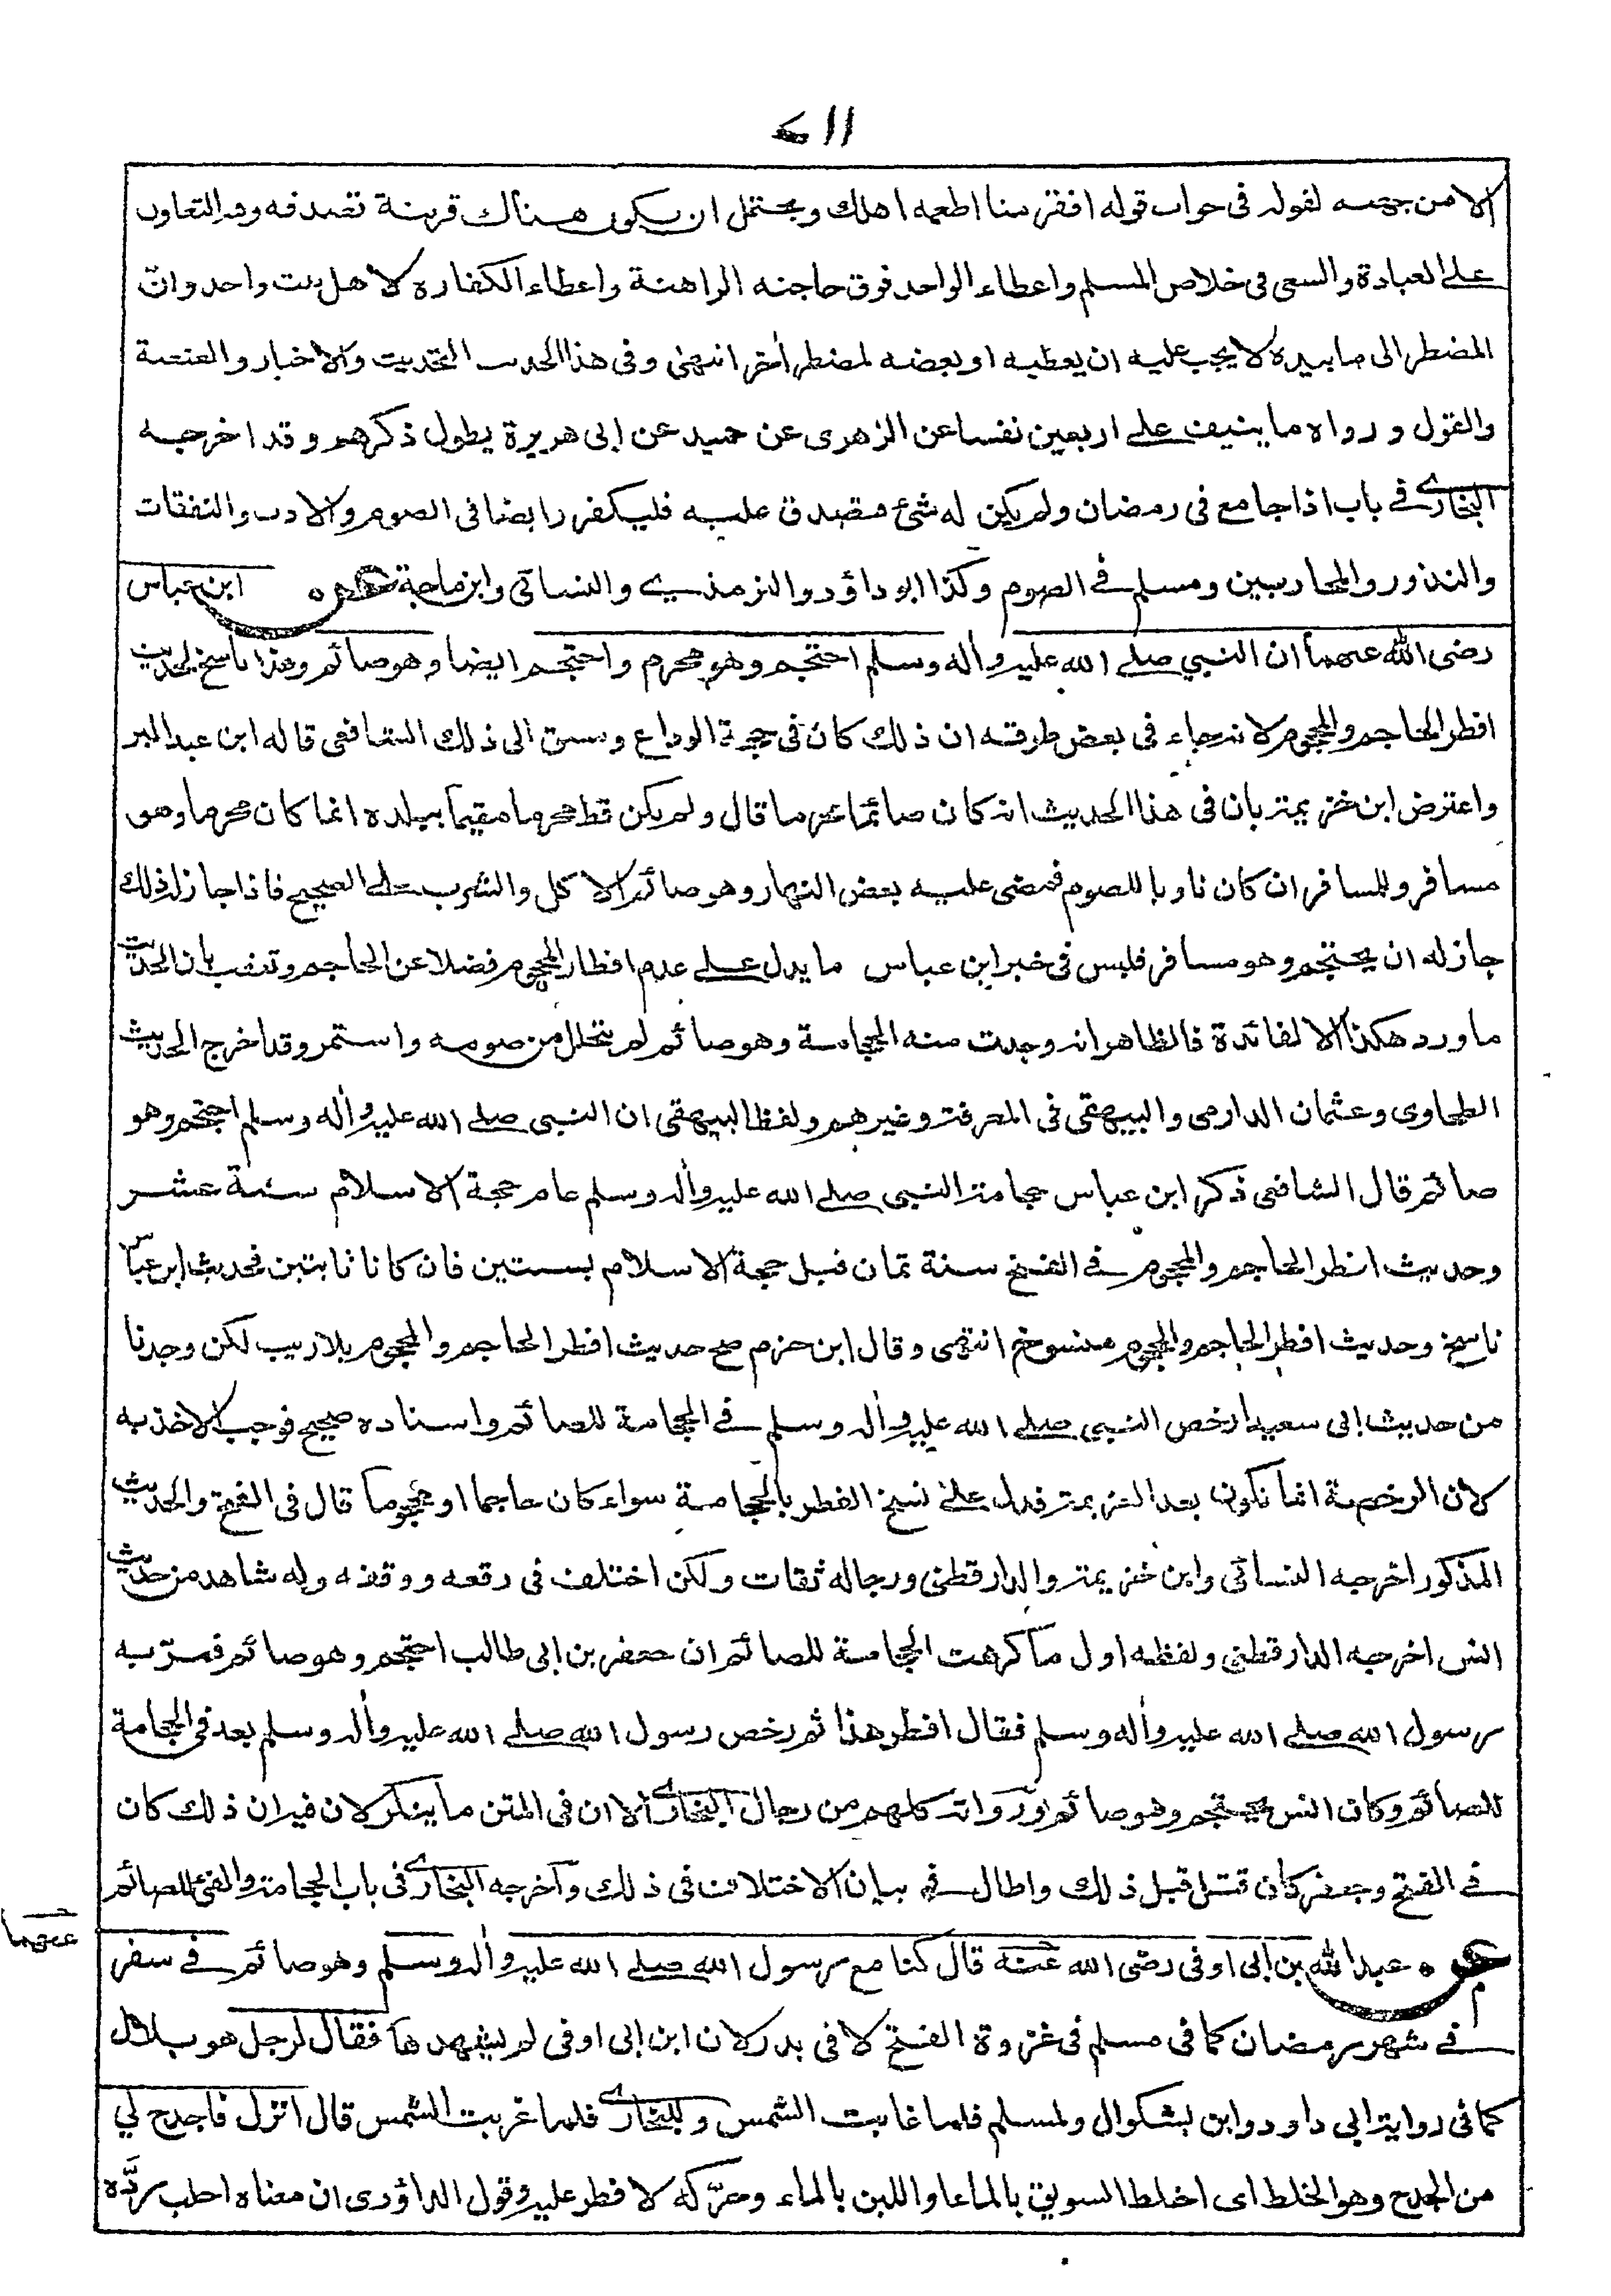 ٧١١
الا من جهة لقوله فى جواب قوله افقر منا اطعمه اهلك ويحتمل ان يكون هناك قرينة تصدقه وفيه التعاون
على العبادة والسعى فى خلاص المسلم واعطاء الواحد فوق حاجته الراهنة واعطاء الكفارة لاهل بيت واحد وانّ
المضطر الى ما بيده لا يجب عليه ان يعطيه او بعضه لمضطر أخر انتهىٰ وفى هذا الحديث التحديث والاخبار والعنعنة
والقول ورواه ما ينيف على اربعين نفسا عن الزهرى عن حميد عن ابى هريرة يطول ذكرهم وقد اخرجه
البخارى فى باب اذا جامع فى رمضان ولم يكن له شئ فتصدق عليه فليكفر وايضا فى الصوم والادب والنفقات
والنذور والمحاربين ومسلم فى الصوم وكذا ابو داؤد والترمذى والنسائى وابن ماجة عن ابن عباس
رضى الله عنهما ان النبي صلى الله عليه وأله وسلم احتجم وهو محرم واحتجم ايضا وهو صائم وهذا ناسخ لحديث
افطر الحاجم والمحجوم لانه جاء فى بعض طرقه ان ذلك كان فى حجة الوداع وسبق الى ذلك الشافعى قاله ابن عبد البر
واعترض ابن خزيمة بان فى هذا الحديث انه كان صائما محرما قال ولم يكن قط محرما مقيما ببلده انما كان محرما وهو
مسافر وللمسافر ان كان ناويا للصوم فمضى عليه بعض النهار وهو صائم الاكل والشرب على الصحيح فاذا جاز له ذلك
جاز له ان يحتجم وهو مسافر فليس فى خبر ابن عباس ما يدل على عدم افطار المحجوم فضلا عن الحاجم وتعقب بان الحديث
ما ورد هكذا الا لفائدة فالظاهر انه وجدت منه الحجامة وهو صائم لم يتحلل من صومه واستمر وقد اخرج الحديث
الطحاوى وعثمان الدارمى والبيهقى فى المعرفة وغيرهم ولفظ البيهقى ان النبى صلى الله عليه وأله وسلم احتجم وهو
صائم قال الشافعى ذكر ابن عباس حجامة النبى صلى الله عليه وأله وسلم عام حجة الاسلام سنة عشر
وحديث افطر الحاجم والمحجوم فى الفتح سنة ثمان قبل حجة الاسلام بسنتين فان كانا ثابتين فحديث ابن عباس
ناسخ وحديث افطر الحاجم والمحجوم منسوخ انتهى وقال ابن حزم صح حديث افطر الحاجم والمحجوم بلا ريب لكن وجدنا
من حديث ابى سعيد ارخص النبي صلى الله عليه وأله وسلم فى الحجامة للصائم واسناده صحيح فوجب الاخذ به
لان الرخصة انما تكون بعد العزيمة فدل على نسخ الفطر بالحجامة سواء كان حاجما او محجوما قال فى الفتح والحديث
المذكور اخرجه النسائى وابن خزيمة والدارقطنى ورجاله ثقات ولكن اختلف فى رفعه ووقفه وله شاهد من حديث
انس اخرجه الدارقطنى ولفظه اول ما كرهت الحجامة للصائم ان جعفر بن ابى طالب احتجم وهو صائم فمرّ به
رسول الله صلى الله عليه وأله وسلم فقال افطر هذا ثم رخص رسول الله صلى الله عليه وأله وسلم بعد فى الحجامة
للصائم وكان انس يحتجم وهو صائم ورواته كلهم من رجال البخارى الا ان فى المتن ما ينكر لان فيه ان ذلك كان
فى الفتح وجعفر كان قتل قبل ذلك واطال فى بيان الاختلاف فى ذلك وأخرجه البخارى فى باب الحجامة والقئ للصائم
عن عبد الله بن ابى اوفى رضى الله عنه قال كنا مع رسول الله صلى الله عليه وأله وسلم وهو صائم فى سفر
عنهما
فى شهر رمضان كما فى مسلم فى غزوة الفتح لا فى بدر لان ابن ابى اوفى لم يشهدها فقال لرجل هو بلال
كما فى رواية ابى داود وابن بشكوال ولمسلم فلما غابت الشمس وللبخارى فلما غربت الشمس قال انزل فاجدح لي
من الجدح وهو الخلط اى اخلط السويق بالماء او اللبن بالماء وحرّكه لافطر عليه وقول الداؤدى ان معناه احلب ردّه